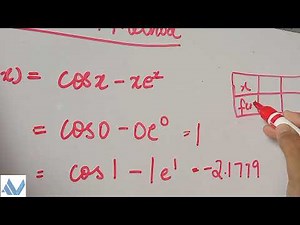 Method
x) = cosx - xe^x
= cos0 - 0e^0 = 1
= cos1 - 1e^1 = -2.1779
x
f(x